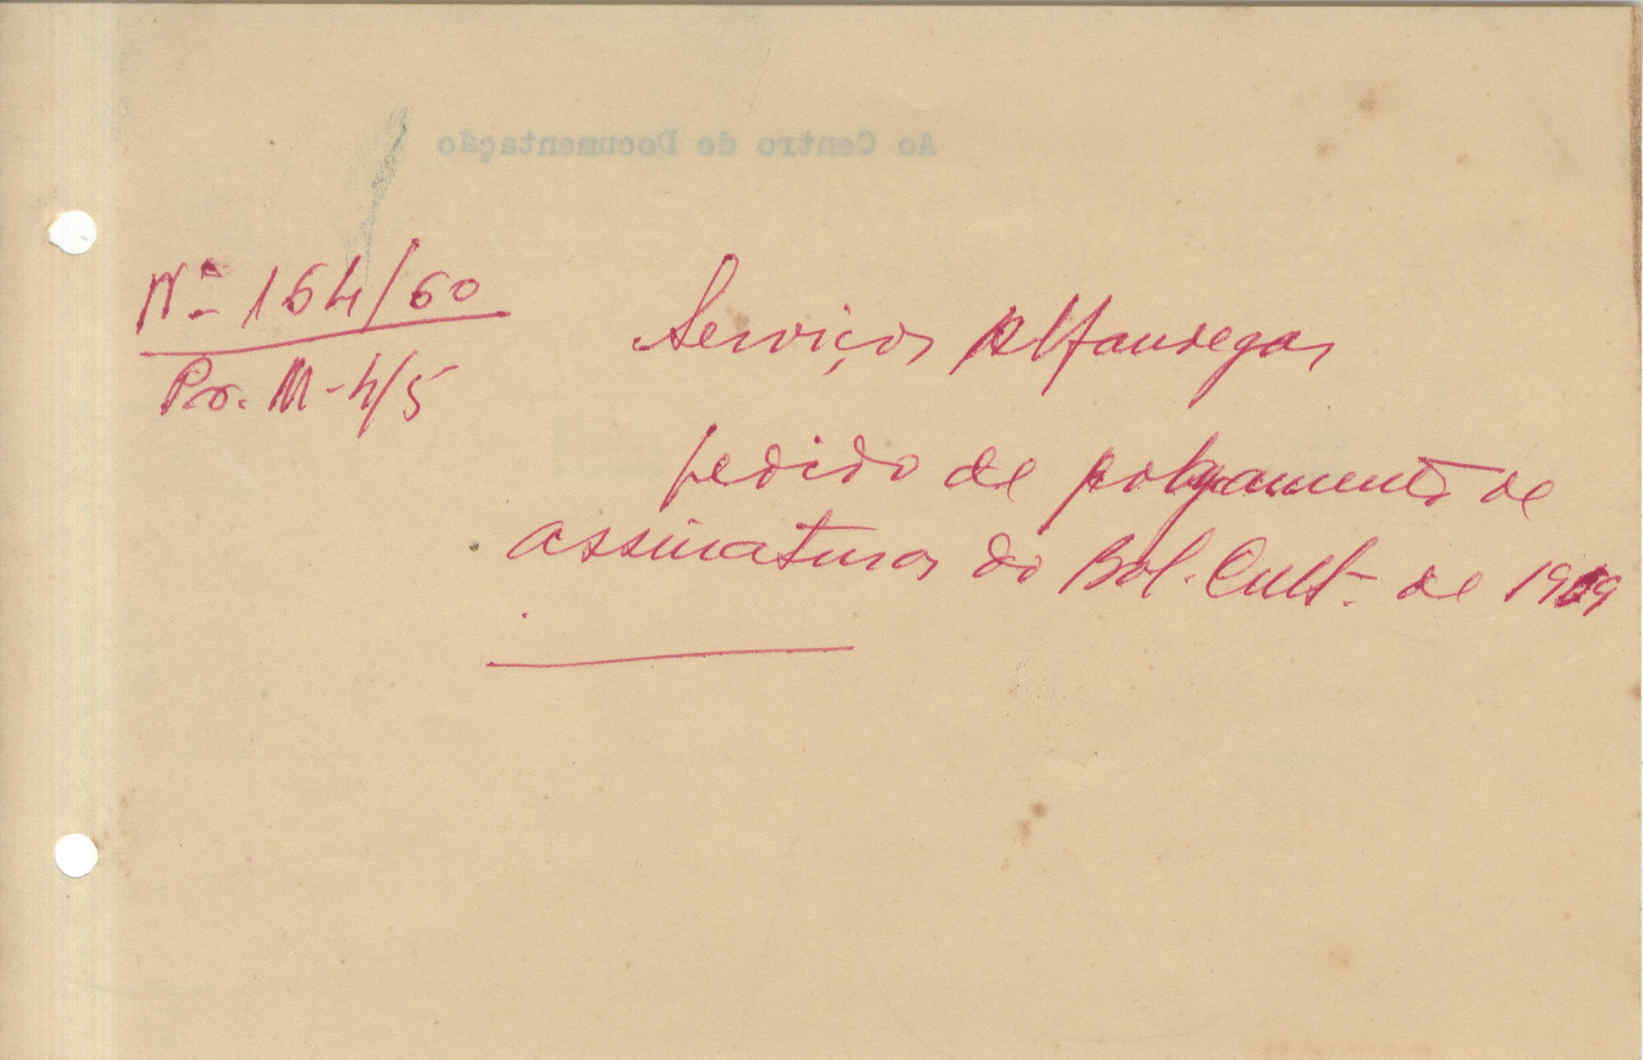 Ao Centro de Documentação
Nº 164/60
Pr. M-4/5
Serviços Alfandegas
pedido de pagamento de
assinaturas do Bol. Cult. de